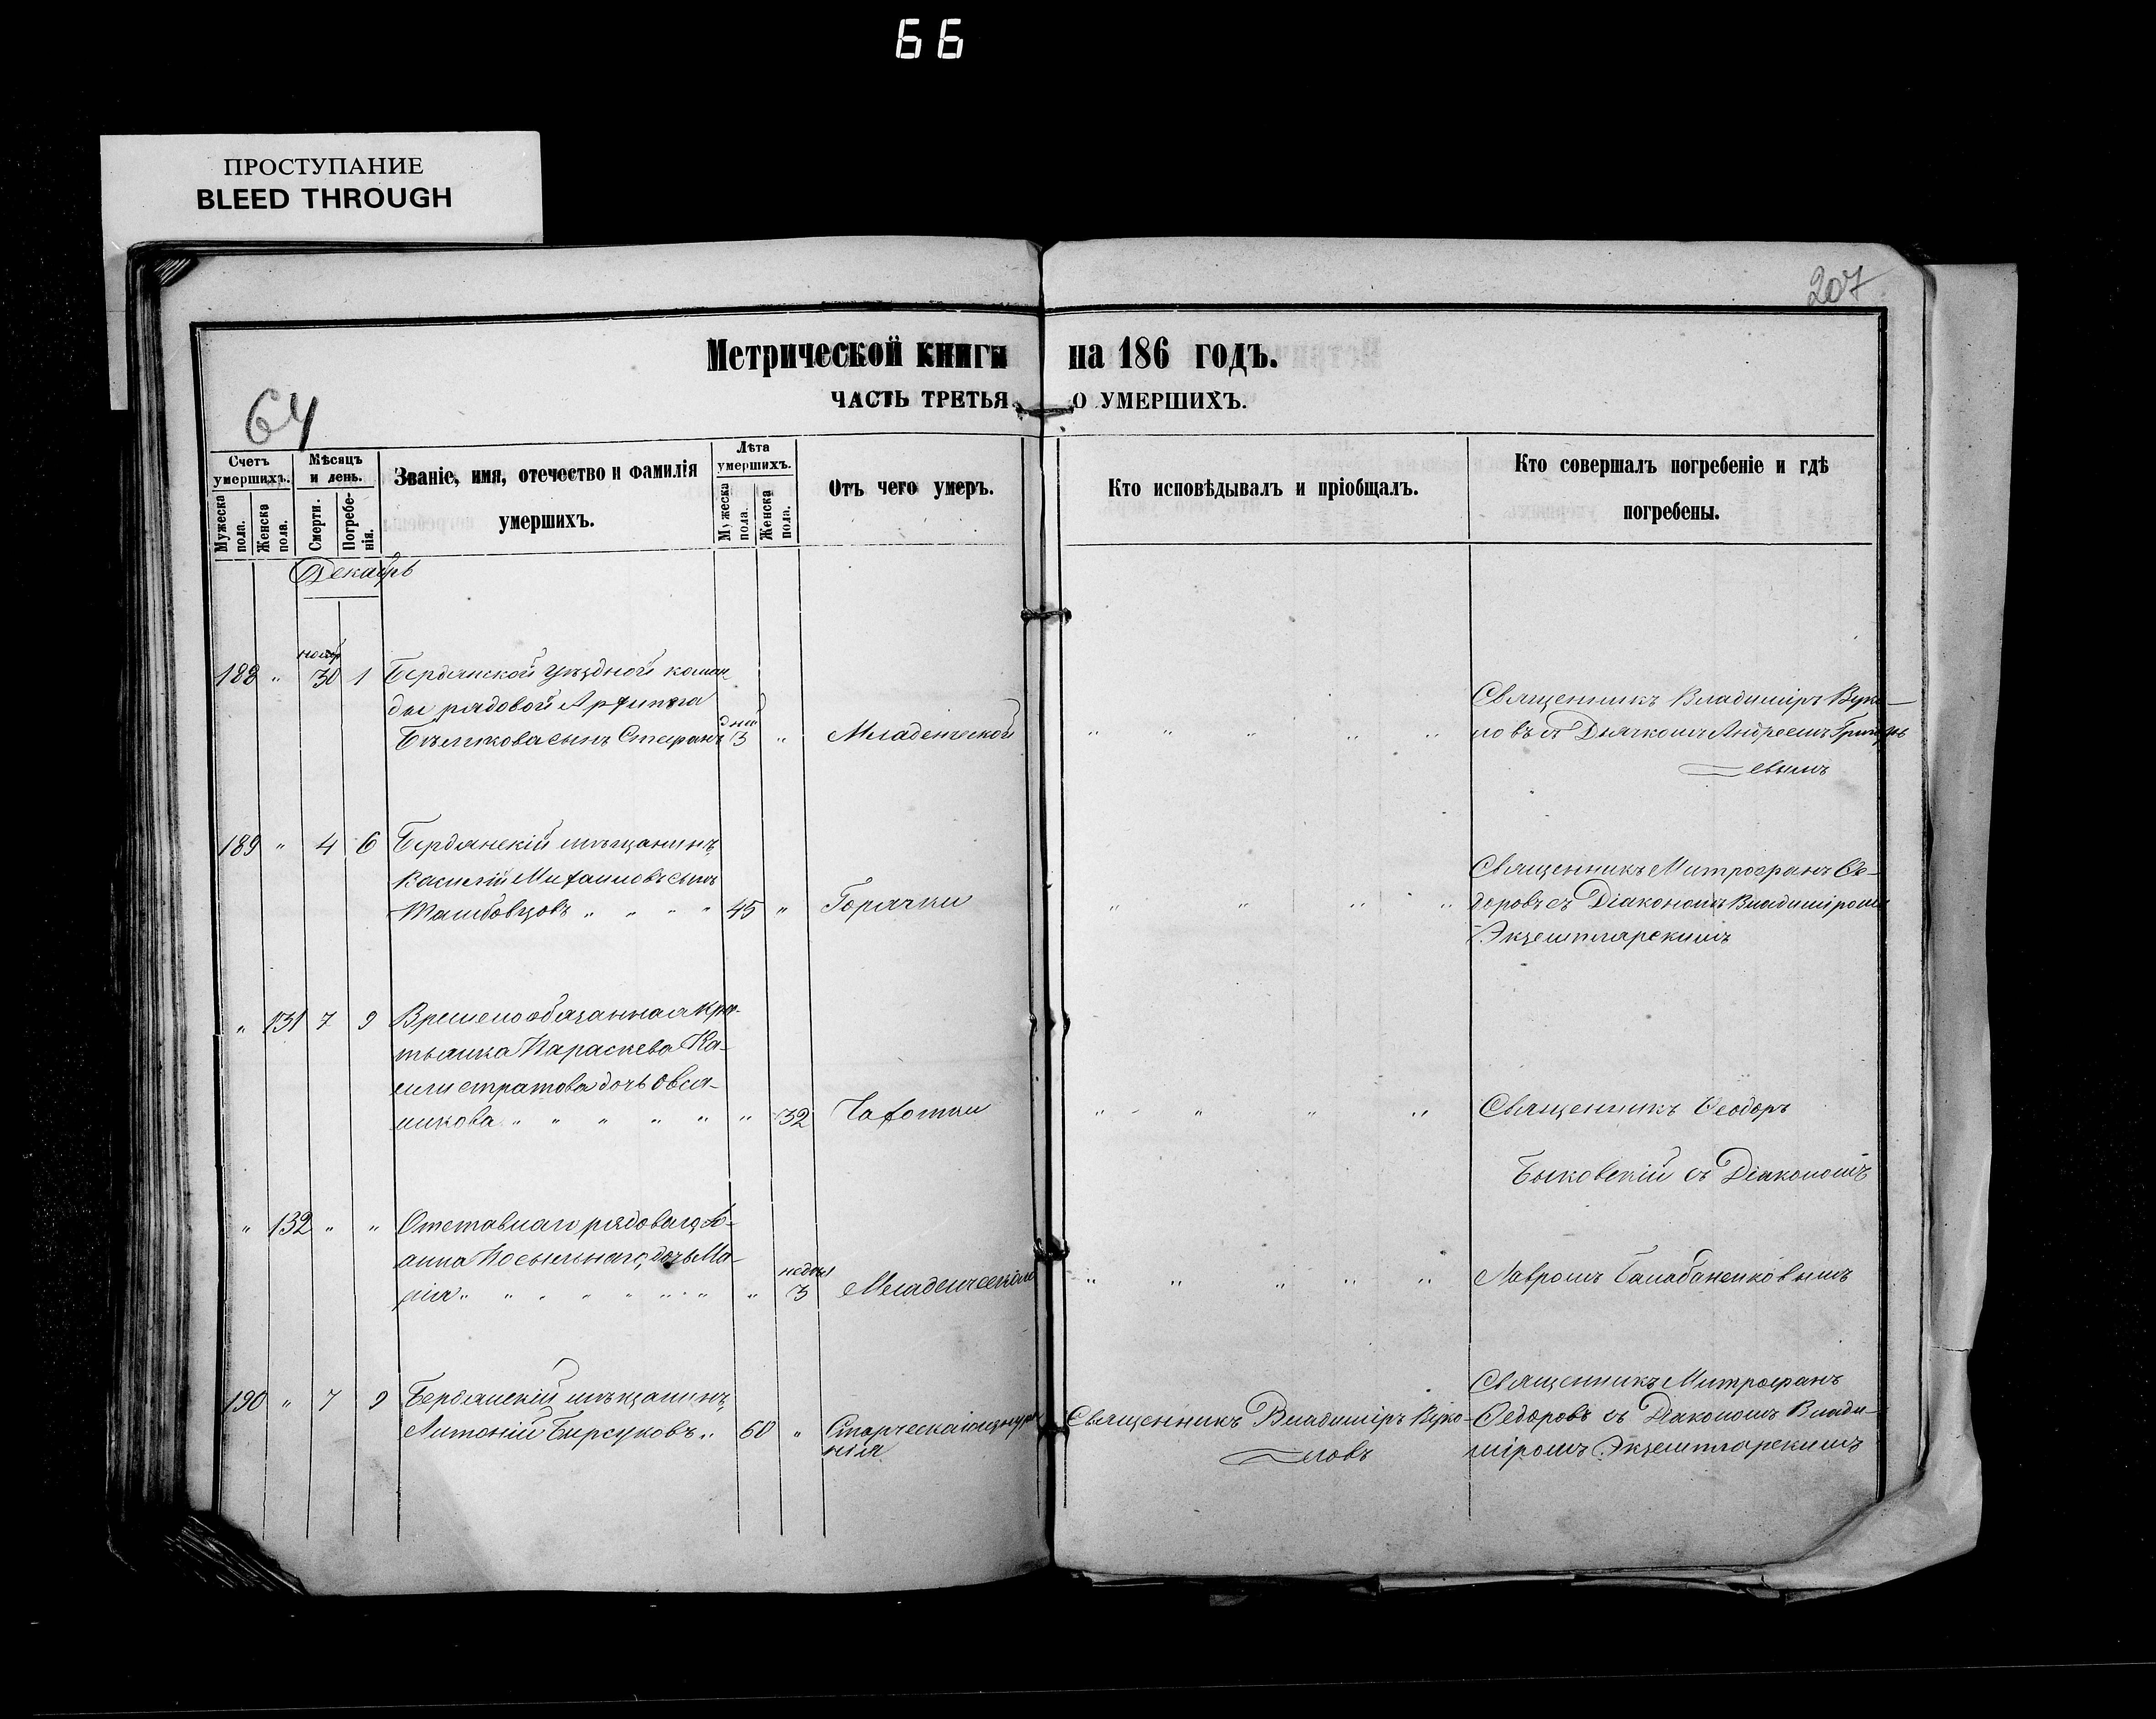 66
ПРОСТУПАНИЕ
BLEED THROUGH
207
Метрической книги на 186 годъ.
ЧАСТЬ ТРЕТЬЯ О УМЕРШИХЪ.
64
Счетъ умершихъ.
Мужеска пола.
Женска пола.
Мѣсяцъ и день.
Смерти.
Погребенія.
Званіе, имя, отечество и фамилія умершихъ.
Лѣта умершихъ.
Мужеска пола.
Женска пола.
Отъ чего умеръ.
Кто исповѣдывалъ и пріобщалъ.
Кто совершалъ погребеніе и гдѣ погребены.
Декабрь
нояб
188 " 30 1 Бердянской уѣздной коман
ды рядовой
сынъ Стефанъ дней 3 " Младенческой
Священникъ Владиміръ Вуко-
ловъ съ Дьячкомъ Андреемъ Григорь
евымъ
189 " 4 6 Бердянскій мѣщанинъ
Василій Михаиловъ сынъ
Тамбовцовъ " " " " 45 " Горячки
Священникъ Митрофанъ Ѳе-
доровъ съ Діакономъ Владиміромъ
Экземплярскимъ
" 131 7 9 Временообязанная кре-
тьянка Параскева Ка-
листратова дочь Овся-
никова " " " " " " 32 Чахотки
Священникъ Ѳеодоръ
Быковскій съ Діакономъ
" 132 " " Отставнаго рядоваго
дочь Ма-
рія " " " " " " " " недѣл 3 Младенческой
Лавромъ Балабаненковымъ
190 " 7 9 Бердянскій мѣщанинъ
Антоній Бирсуковъ " 60 " Старческаго
нія
Священникъ Владиміръ Вуко-
ловъ
Священникъ Митрофанъ
Ѳедоровъ съ Діакономъ Влади-
міромъ Экземплярскимъ